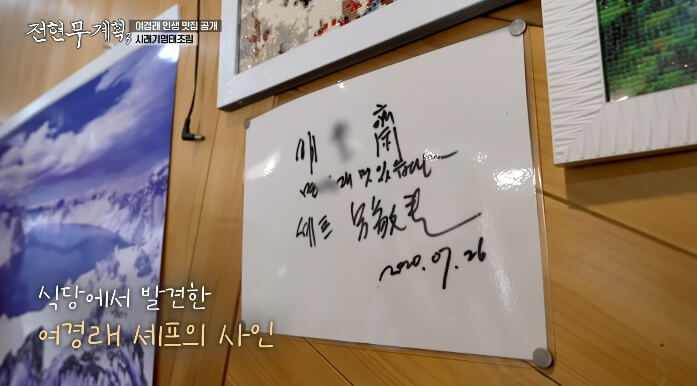 전현무계획3
여경래 인생 맛집 공개
시래기명태조림
齋
맛있습니다
셰프
2020.07.26
식당에서 발견한
여경래 셰프의 사인